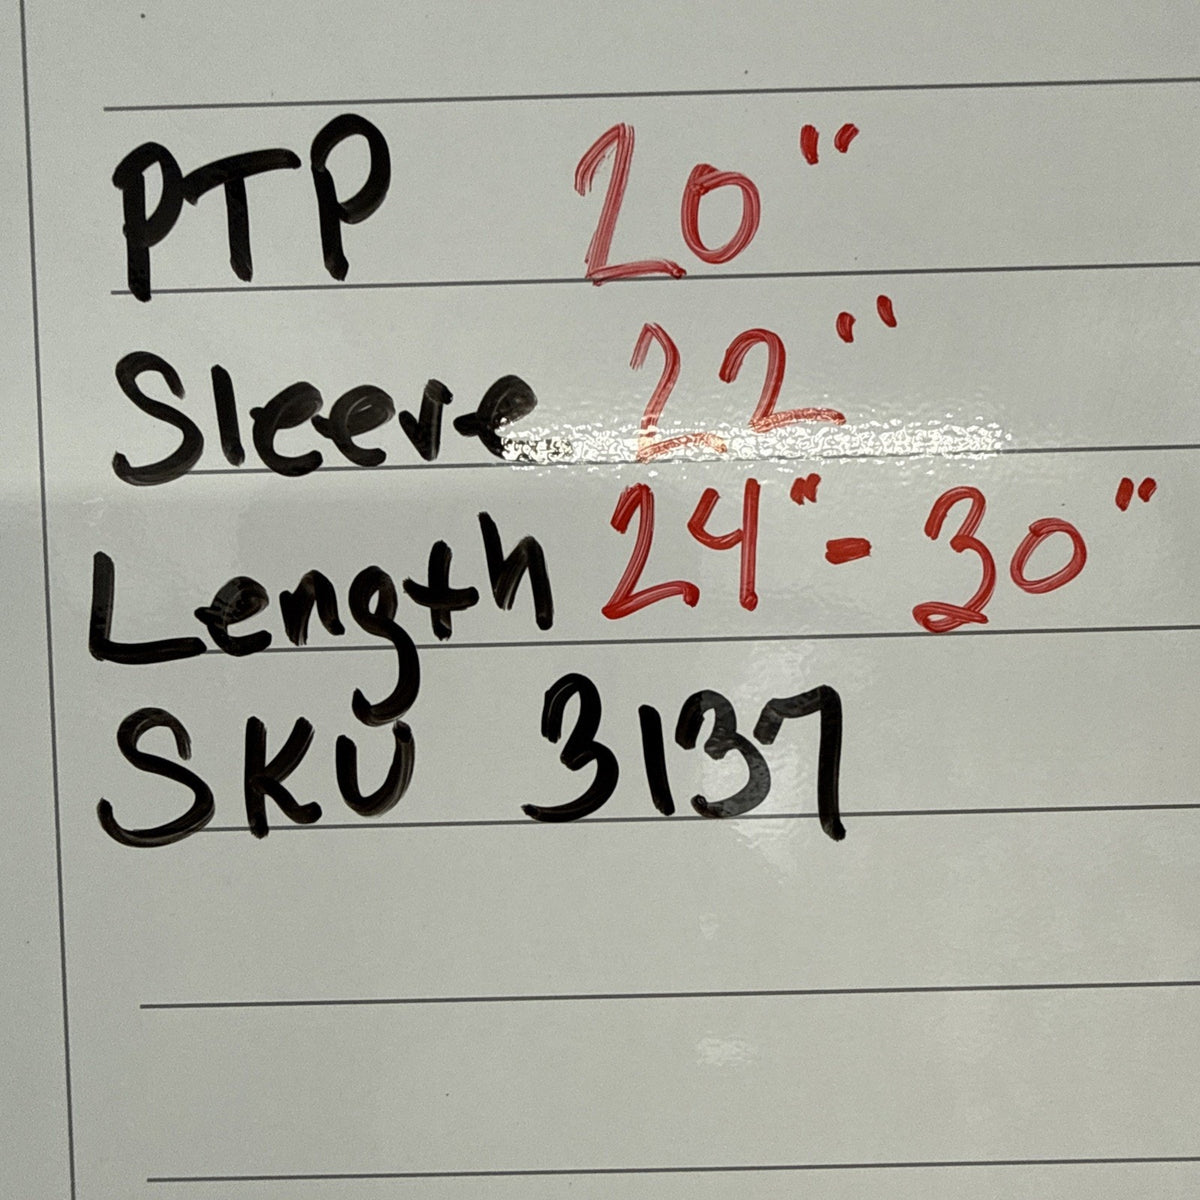 PTP 20"
Sleeve 22"
Length 24"- 30"
SKU 3137